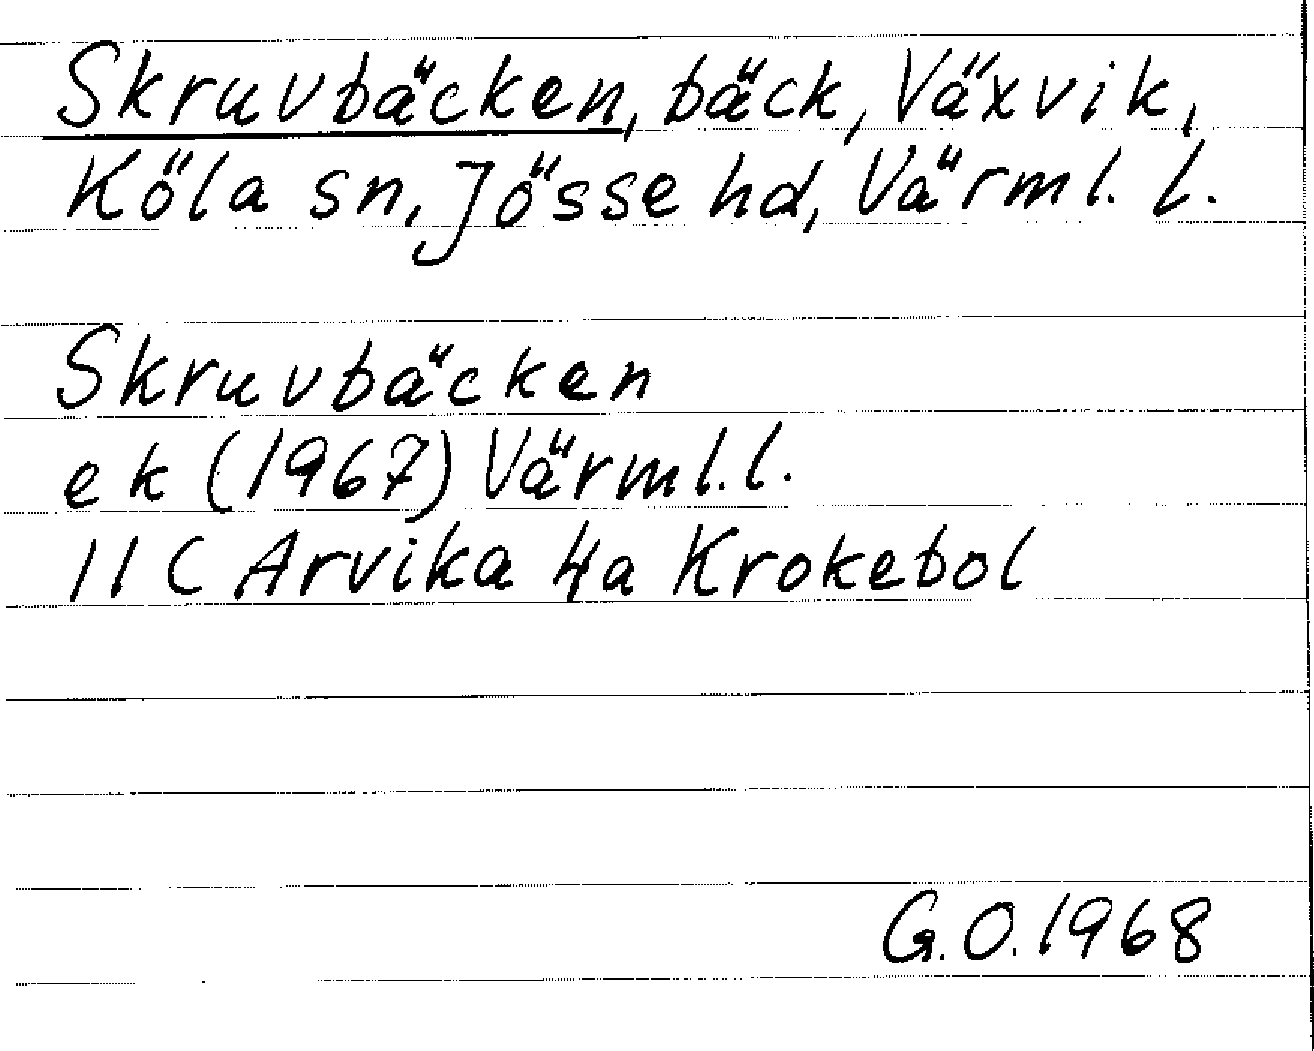 Skruvbäcken, bäck, Växvik,
Köla sn, Jösse hd, Värml. l.
Skruvbäcken
ek (1967) Värml. l.
11C Arvika 4a Krokebol
G.O. 1968